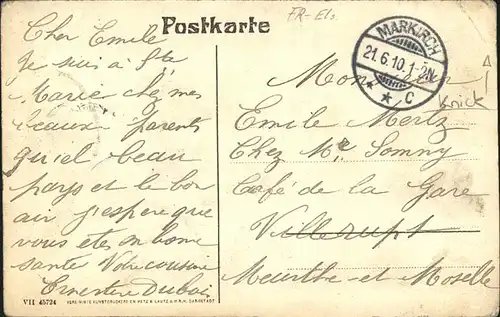 Postkarte
FR-Els
MARKIRCH
21.6.10.1-2N
* * c
Knick
Cher Emile
Je suis a Ste
Marie chez mes
beaux parents
quel beau
pays et le bon
air j'espere que
vous etes en bonne
sante Votre cousine
Ernestine Dubois
Monsieur
Emile Mertz
Chez Mr Sommy
Café de la Gare
Villerupt
Meurthe et Moselle
VII 45724
VEREINIGTE KUNSTDRUCKEREIEN METZ & LAUTZ G.M.B.H. DARMSTADT